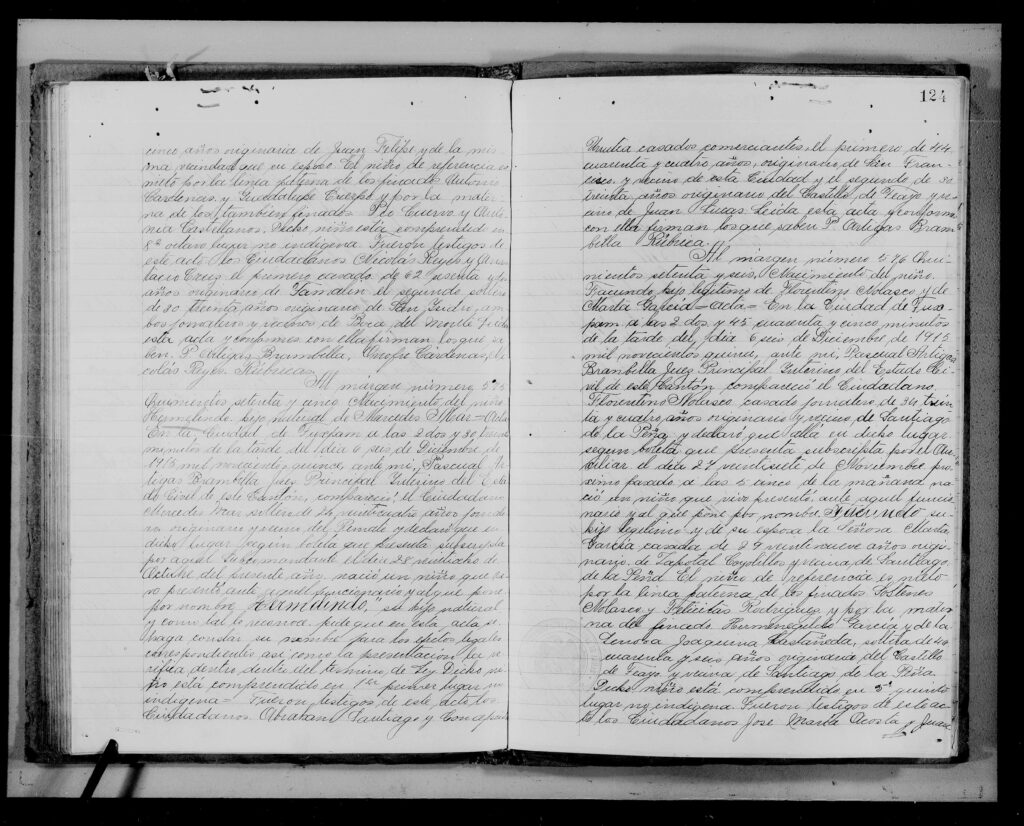 cinco años originaria de Juan Felipe y de la mis
ma vecindad que su esposo. El niño de referencia es
nieto por la línea paterna de los finados Antonio
Cardenas y Guadalupe Cuervo y por la mater
na de los también finados P. de Cuervo y
Castellanos. Dicho niño está comprendido en
8º octavo lugar no indígena. Fueron testigos de
este acto los Ciudadanos Nicolás Reyes y
Cruz el primero casado de 62 sesenta y dos
años originario de Tamalín el segundo soltero
de 30 treinta años originario de San Isidro, am
bos jornaleros y vecinos de Boca del Monte. Leída
esta acta y conformes con ella firman los que sa
ben. P. Artigas Brambilla, Onofre Cardenas, Ni
colás Reyes. Rúbricas.
Al margen número 575
Quinientos setenta y cinco Nacimiento del niño
hijo natural de Mercedes = Acta
En la Ciudad de Tuxpam a las 2 dos y 30 treinta
minutos de la tarde del día 6 seis de Diciembre de
1915 mil novecientos quince ante mí, Pascual Ar
tigas Brambilla Juez Principal Interino del Esta
do Civil de este Cantón, compareció el Ciudadano
Mercedes soltero de 24 veinticuatro años jornale
ro originario y vecino del y declaró que en
dicho lugar según boleta que presenta subscripta
por aquel Subcomandante el día 28 veintiocho de
Octubre del presente año, nació un niño que vi
vo presentó ante aquel funcionario y al que pone
por nombre su hijo natural
y como tal lo reconoce, pide que en esta acta se
haga constar su nombre para los efectos legales
correspondientes así como la presentación se ve
rifica dentro del término de Ley Dicho ni
ño está comprendido en 1er primer lugar no
indígena = Fueron testigos de este acto los
Ciudadanos Abraham Santiago y Concepción
124
casados comerciantes el primero de 44
cuarenta y cuatro años, originario de San Fran
cisco y vecino de esta Ciudad y el segundo de 30
treinta años originario del Castillo de Teayo y ve
cino de Juan Lucas Leída esta acta y conformes
con ella firman los que saben P. Artigas Bram
billa Rúbrica.
Al margen número 576 Qui
nientos setenta y seis, Nacimiento del niño
Facundo hijo legítimo de Florentino Nolasco y de
Marta García = Acta = En la Ciudad de Tux
pam a las 2 dos y 45 cuarenta y cinco minutos
de la tarde del día 6 seis de Diciembre de 1915
mil novecientos quince, ante mí, Pascual Artigas
Brambilla Juez Principal Interino del Estado Ci
vil de este Cantón compareció el Ciudadano
Florentino Nolasco casado jornalero de 34 trein
ta y cuatro años originario y vecino de Santiago
de la Peña, y declaró que allá en dicho lugar
según boleta que presenta subscripta por el Au
xiliar el día 27 veintisiete de Noviembre pró
ximo pasado a las 5 cinco de la mañana na
ció un niño que vivo presentó ante aquel funcio
nario y al que pone por nombre Facundo su
hijo legítimo y de su esposa la Señora Marta
García casada de 29 veintinueve años origi
naria de Zapotal Coyolillos y vecina de Santiago
de la Peña El niño de referencia es nieto
por la línea paterna de los finados Sóstenes
Nolasco y Felicitas Rodríguez y por la mater
na del finado Hermenegildo García y de la
Señora Joaquina Castañeda, soltera de 46
cuarenta y seis años originaria del Castillo
de Teayo y vecina de Santiago de la Peña
Dicho niño está comprendido en 5º quinto
lugar no indígena. Fueron testigos de este ac
to los Ciudadanos José María Acosta y Juan